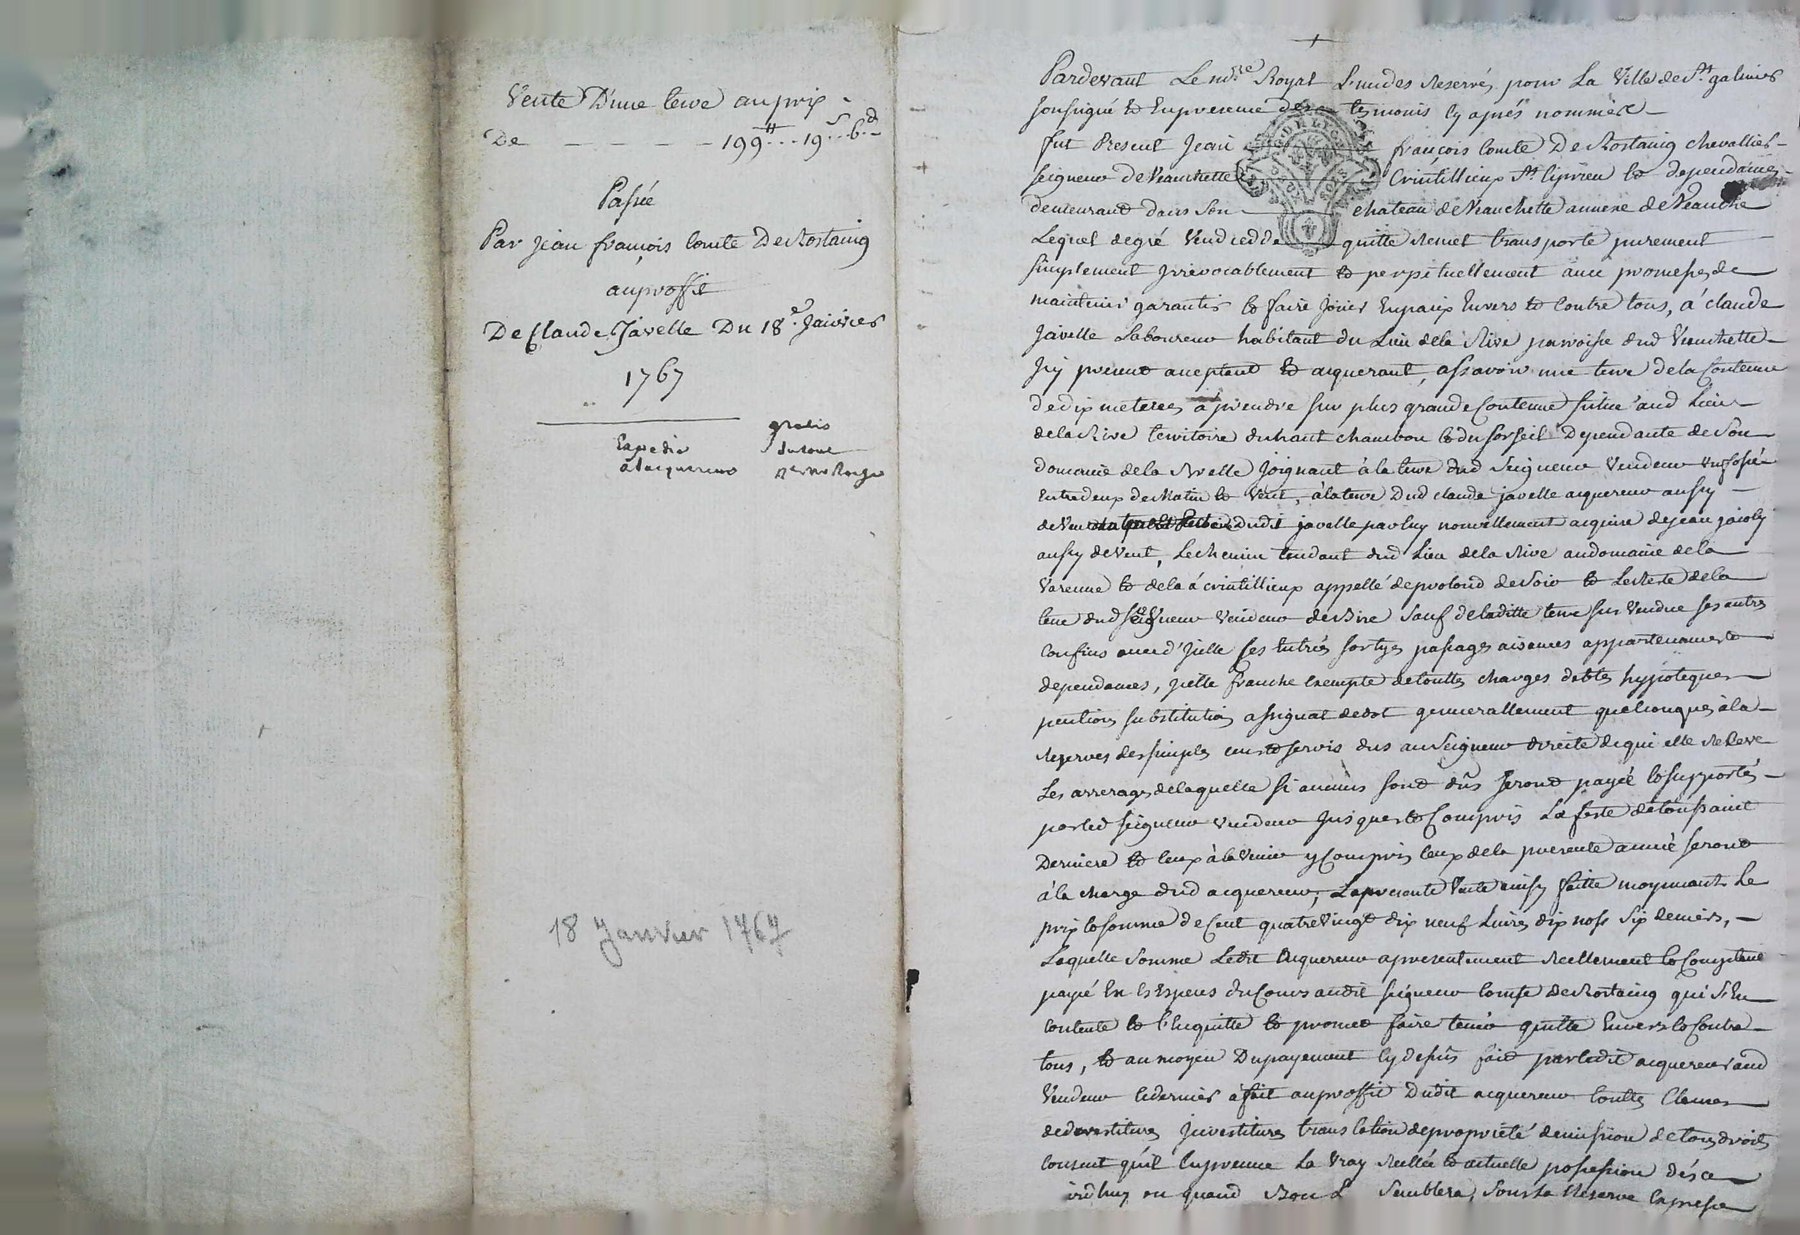 Vente D'une terre au prix
De - - - - 199tt...19s..6d
Passée
Par Jean françois Comte De Rostaing
auproffit
De Claude Javelle Du 18e. Janvier
1767
Expedié
à l'acquereur
gratis
18 Janvier 1767
Pardevant Le nore Royal Soussigné Reservé pour La Ville de St galmier
soussigné & En presence des temoins Cy aprés nommés
fut Present Jean françois Comte De Rostaing chevallier
seigneur de Veauchette Crintillieux St Ciprien & dependances
demeurant dans son chateau de Veauchette annexe de Veauche
Lequel de gré Vend cedde quitte Remet transporte purement
simplement Irrevocablement & perpetuellement avec promesse de
maintenir garantir & faire Jouir En paix Envers & Contre tous, à claude
Javelle Laboureur habitant du Lieu dela Rive parroisse dud Veauchette
Icy present acceptant & acquerant, assavoir une terre de la Contenue
de dix meterées à prendre sur plus grande Contenue situé aud Lieu
dela Rive territoire du haut chambon & du forseil Dependante de son
domaine dela Joignant à la terre dud Seigneur Vendeur un fossé
Entredeux de Matin & Vent, à la terre Dud claude javelle acquereur aussy
de Vent dudit javelle par luy nouvellement acquise de jean jacoby
aussy de Vent, Le chemin tendant dud Lieu dela Rive au domaine de la
Varenne & dela à crintillieux appellé de protond de Soir & Le Reste dela
terre dud Seigneur Vendeur de Bize sauf de laditte terre sus Vendue ses autres
Confins avec d'Icelle ses Entrés sortyes passages aisances appartenances &
dependances, Icelle franche Exempte de touttes charges debtes hypoteques
pentions substitution assignat de dot generallement quelconques à la
Reserves des simples cens & servis dus au Seigneur directe de qui elle Releve
Les arrerages de laquelle si aucuns sont dus seront payés & supportés
par led Seigneur Vendeur Jusques & Compris La feste de toussaint
Derniere & Ceux à la Venir y Compris Ceux dela presente année seront
à la charge dud acquereur, La presente Vente ainsy faitte moyennant Le
prix & somme de Cent quatre Vingt dix neuf Livres dix neuf sols Six deniers,
Laquelle Somme Ledit Acquereur a presentement Reellement & Comptant
payé En Especes du Cours audit Seigneur Comte De Rostaing qui s'En
Contente & l'En quitte & promet faire tenir quitte Envers & Contre
tous, & au moyen Du payement Cy dessus fait par ledit acquereur aud
Vendeur Ce dernier à fait auproffit Dudit acquereur touttes Clauses
de devestitures Investitures translation de propriété demission de tous droits
Consent qu'il En prenne La Vray Reelle & actuelle possession dés ce
jourdhuy ou quand Bon L Semblera, Sous La Reserve Expresse